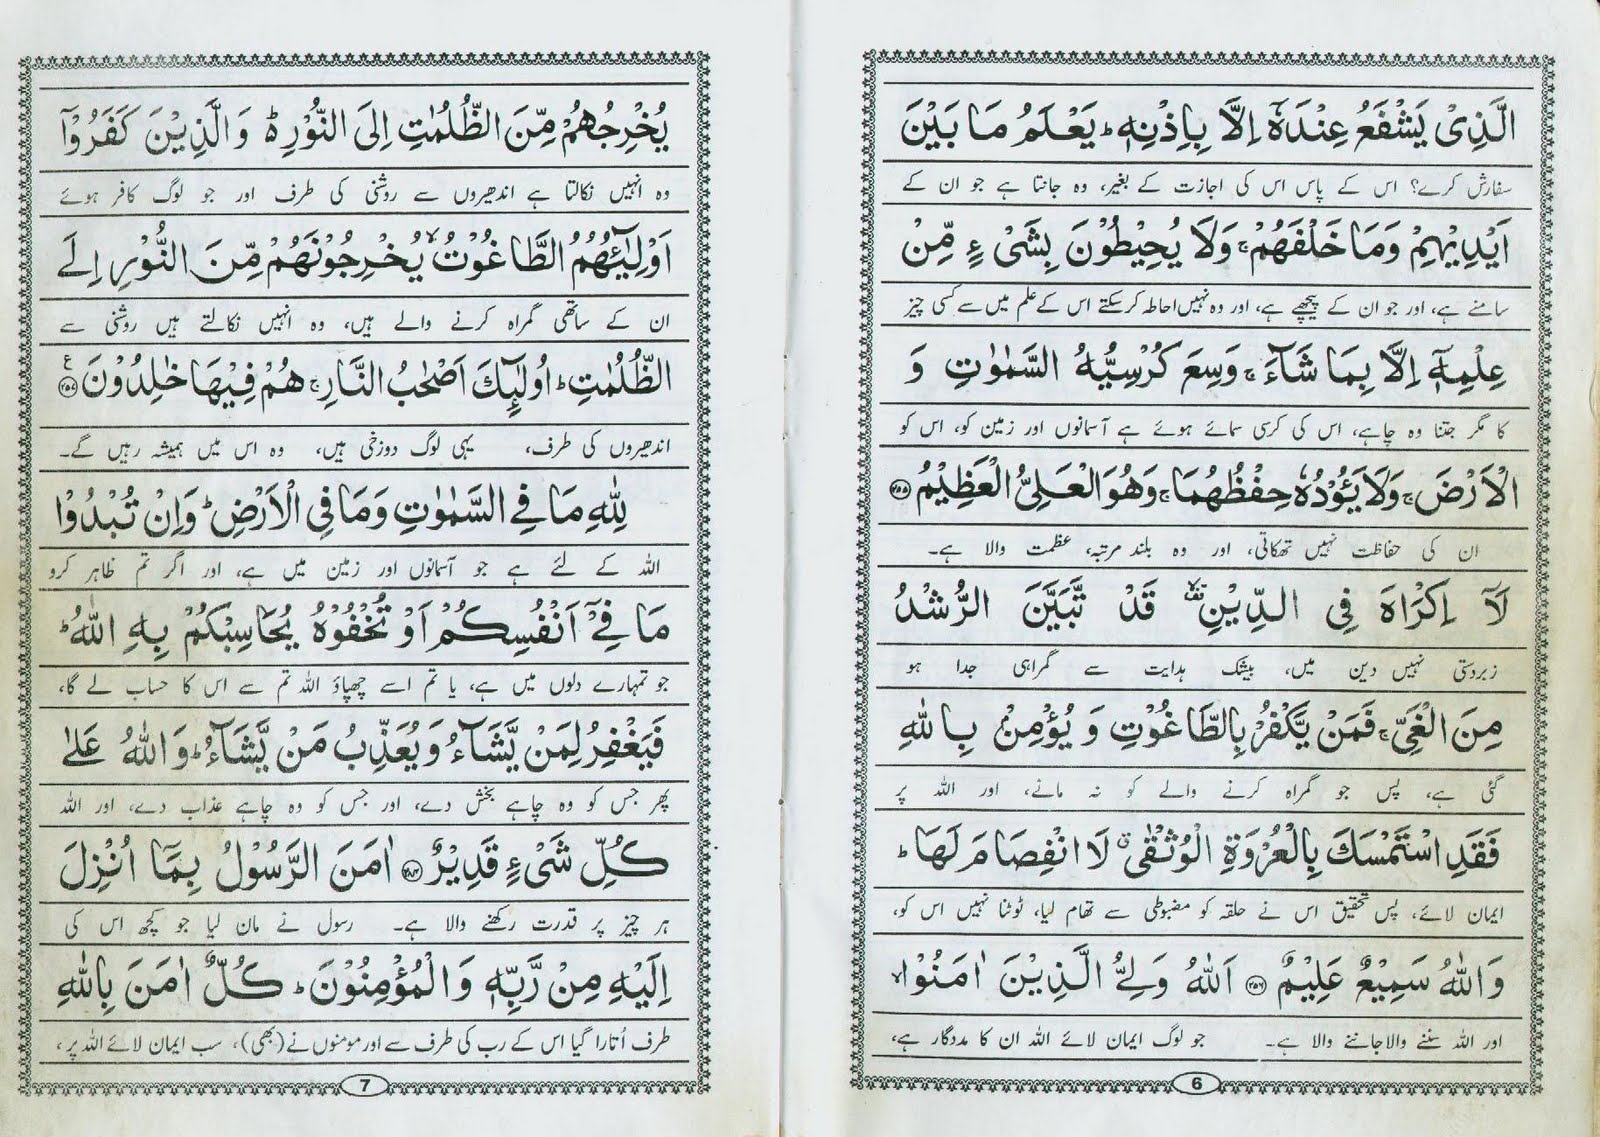 الَّذِیْ یَشْفَعُ عِنْدَہٗۤ اِلَّا بِاِذْنِہٖ ؕ یَعْلَمُ مَا بَیْنَ
سفارش کرے؟ اس کے پاس اس کی اجازت کے بغیر، وہ جانتا ہے جو ان کے
اَیْدِیْہِمْ وَمَا خَلْفَہُمْ ۚ وَلَا یُحِیْطُوْنَ بِشَیْ ءٍ مِّنْ
سامنے ہے، اور جو ان کے پیچھے ہے، اور وہ نہیں احاطہ کرسکتے اس کے علم میں سے کسی چیز
عِلْمِہٖۤ اِلَّا بِمَا شَآءَ ۚ وَسِعَ کُرْسِیُّہُ السَّمٰوٰتِ وَ
کا مگر جتنا وہ چاہے، اس کی کرسی سمائے ہوئے ہے آسمانوں اور زمین کو، اس کو
الْاَرْضَ ۚ وَلَا یَؤُدُہٗ حِفْظُہُمَا ۚ وَہُوَ الْعَلِیُّ الْعَظِیْمُ ﴿۲۵۵﴾
ان کی حفاظت نہیں تھکاتی، اور وہ بلند مرتبہ، عظمت والا ہے۔
لَاۤ اِکْرَاہَ فِی الدِّیْنِ ۟ۙ قَدْ تَّبَیَّنَ الرُّشْدُ
زبردستی نہیں دین میں، بیشک ہدایت سے گمراہی جدا ہو
مِنَ الْغَیِّ ۚ فَمَنْ یَّکْفُرْ بِالطَّاغُوْتِ وَ یُؤْمِنْۢ بِاللّٰہِ
گئی ہے، پس جو گمراہ کرنے والے کو نہ مانے، اور اللہ پر
فَقَدِ اسْتَمْسَکَ بِالْعُرْوَۃِ الْوُثْقٰی ٭ لَا انْفِصَامَ لَہَا ؕ
ایمان لائے، پس تحقیق اس نے حلقہ کو مضبوطی سے تھام لیا، ٹوٹنا نہیں اس کو،
وَاللّٰہُ سَمِیْعٌ عَلِیْمٌ ﴿۲۵۶﴾ اَللّٰہُ وَلِیُّ الَّذِیْنَ اٰمَنُوْا ۙ
اور اللہ سننے والا جاننے والا ہے۔ جو لوگ ایمان لائے اللہ ان کا مددگار ہے،
6
یُخْرِجُہُمْ مِّنَ الظُّلُمٰتِ اِلَی النُّوْرِ ۬ؕ وَالَّذِیْنَ کَفَرُوْۤا
وہ انہیں نکالتا ہے اندھیروں سے روشنی کی طرف اور جو لوگ کافر ہوئے
اَوْلِیٰٓـُٔہُمُ الطَّاغُوْتُ ۙ یُخْرِجُوْنَہُمْ مِّنَ النُّوْرِ اِلَی
ان کے ساتھی گمراہ کرنے والے ہیں، وہ انہیں نکالتے ہیں روشنی سے
الظُّلُمٰتِ ؕ اُولٰٓئِکَ اَصْحٰبُ النَّارِ ۚ ہُمْ فِیْہَا خٰلِدُوْنَ ﴿۲۵۷﴾ ع
اندھیروں کی طرف، یہی لوگ دوزخی ہیں، وہ اس میں ہمیشہ رہیں گے۔
لِلّٰہِ مَا فِی السَّمٰوٰتِ وَمَا فِی الْاَرْضِ ؕ وَاِنْ تُبْدُوْا
اللہ کے لئے ہے جو آسمانوں اور زمین میں ہے، اور اگر تم ظاہر کرو
مَا فِیْۤ اَنْفُسِکُمْ اَوْ تُخْفُوْہُ یُحَاسِبْکُمْ بِہِ اللّٰہُ ؕ
جو تمہارے دلوں میں ہے، یا تم اسے چھپاؤ اللہ تم سے اس کا حساب لے گا،
فَیَغْفِرُ لِمَنْ یَّشَآءُ وَ یُعَذِّبُ مَنْ یَّشَآءُ ؕ وَاللّٰہُ عَلٰی
پھر جس کو وہ چاہے بخش دے، اور جس کو وہ چاہے عذاب دے، اور اللہ
کُلِّ شَیْ ءٍ قَدِیْرٌ ﴿۲۸۴﴾ اٰمَنَ الرَّسُوْلُ بِمَاۤ اُنْزِلَ
ہر چیز پر قدرت رکھنے والا ہے۔ رسول نے مان لیا جو کچھ اس کی
اِلَیْہِ مِنْ رَّبِّہٖ وَالْمُؤْمِنُوْنَ ؕ کُلٌّ اٰمَنَ بِاللّٰہِ
طرف اُتارا گیا اس کے رب کی طرف سے اور مومنوں نے (بھی)، سب ایمان لائے اللہ پر،
7